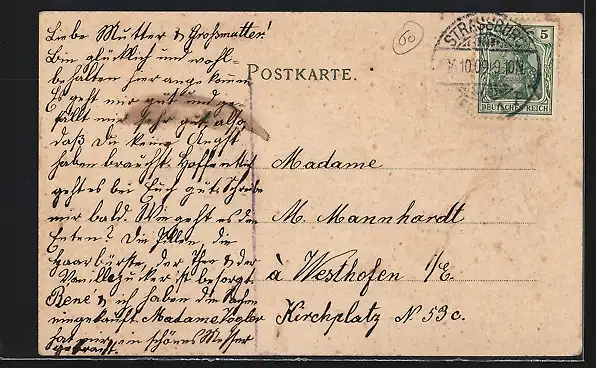 Liebe Mutter & Großmutter!
Bin glücklich und wohl-
behalten hier angekommen
Es geht mir gut und ge-
fällt mir sehr gut also,
daß Du keine Angst
haben brauchst. Hoffentlich
geht es bei Euch gut. Schreibe
mir bald. Wie geht es den
Enten? Die Pillen, die
Haarbürste, der Thee & der
Vanillezucker ist besorgt.
René & ich haben die Sachen
eingekauft. Madame Vogler
hat mir ein schönes Messer
gebracht.
POSTKARTE.
STRASSBURG
10.09. 9-10 N
5
DEUTSCHES REICH
Madame
M. Mannhardt
à Westhofen i/E.
Kirchplatz N 53c.